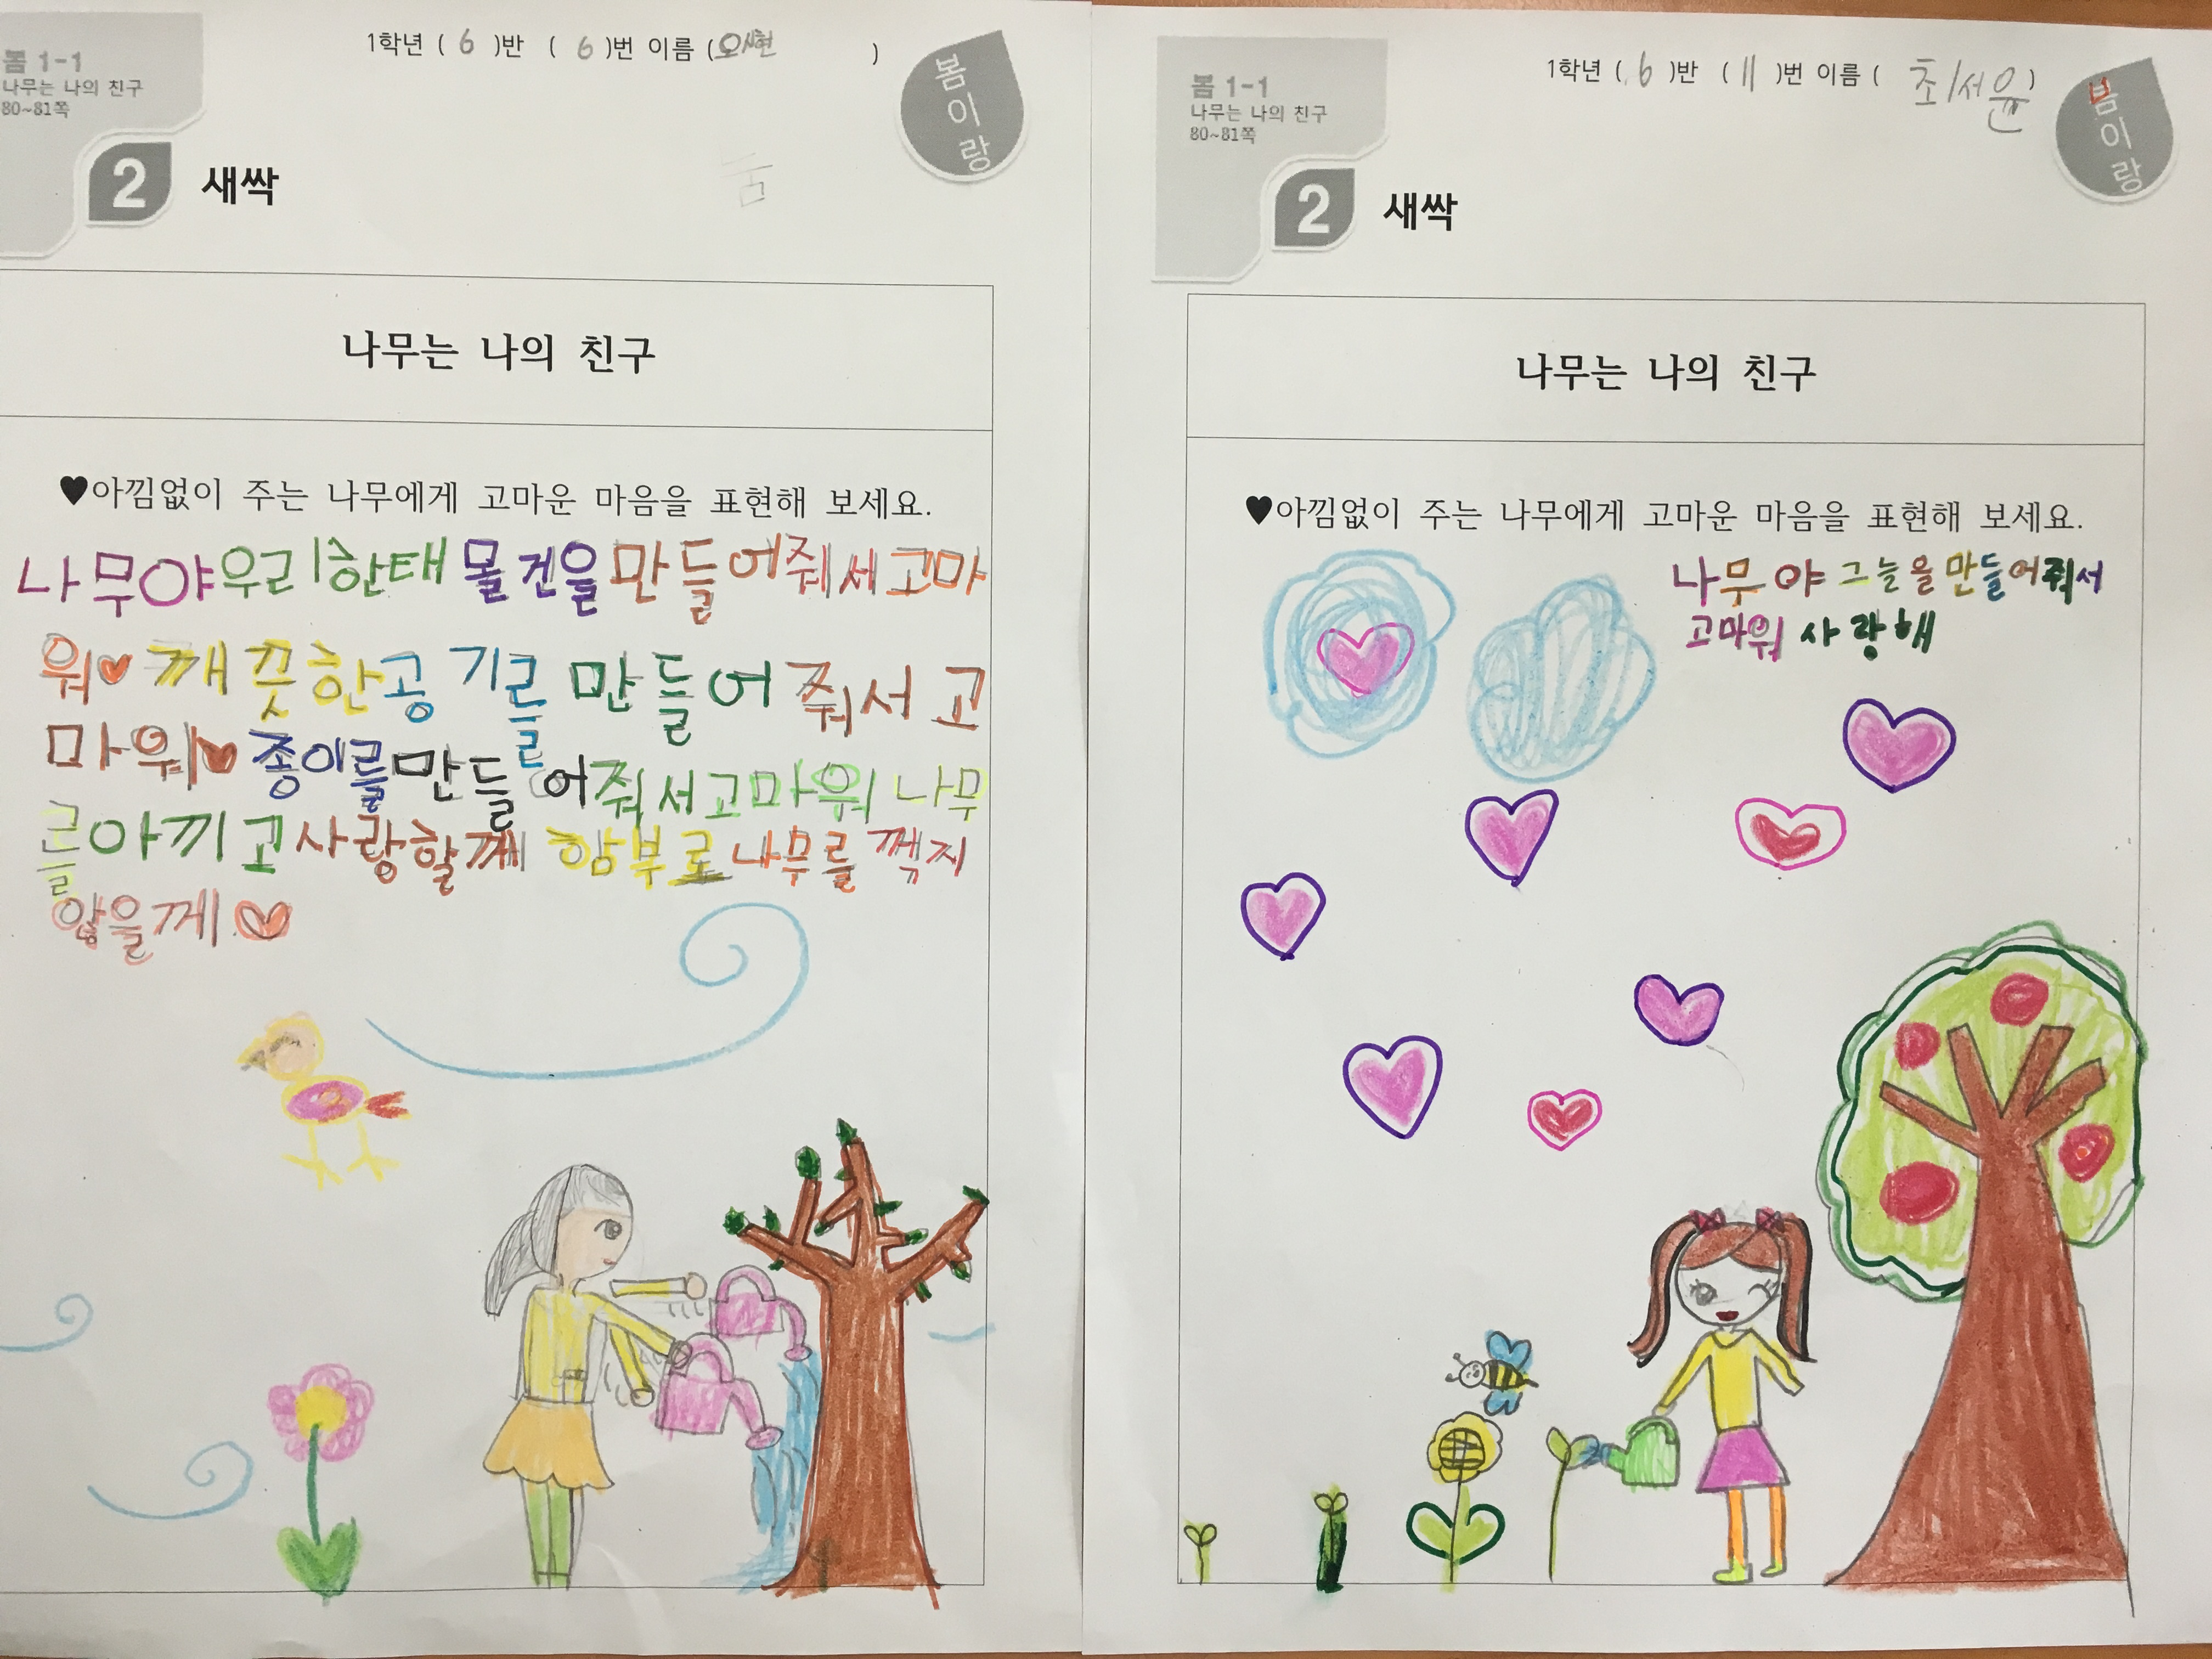 봄 1-1
나무는 나의 친구
80~81쪽
1학년 ( 6 )반 ( 6 )번 이름 ( )
봄이랑
2 새싹
나무는 나의 친구
♥아낌없이 주는 나무에게 고마운 마음을 표현해 보세요.
나무야우리한태 물건을만들어줘서고마
워♥ 깨끗한공기를 만들어 줘서 고
마워♥ 종이를만들어줘서고마워 나무
를아끼고사랑할께 함부로나무를 꺾지
않을께♡
봄 1-1
나무는 나의 친구
80~81쪽
1학년 ( 6 )반 ( 11 )번 이름 ( 최서윤)
봄이랑
2 새싹
나무는 나의 친구
♥아낌없이 주는 나무에게 고마운 마음을 표현해 보세요.
나무야 그늘을만들어줘서
고마워 사랑해